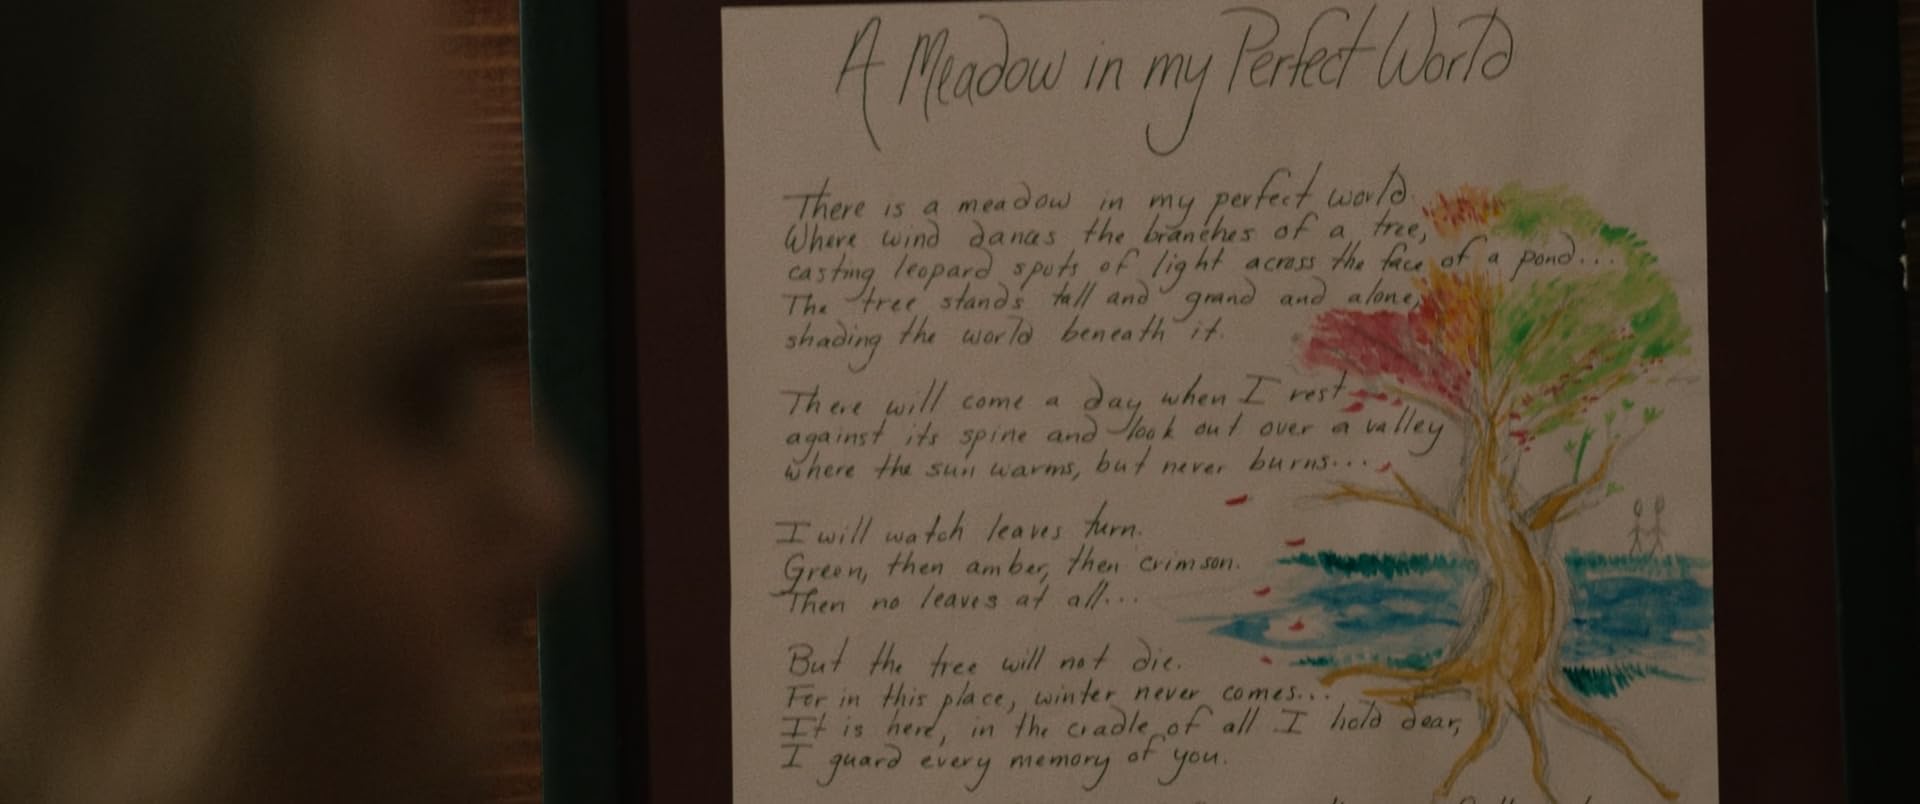 A Meadow in my Perfect World
There is a meadow in my perfect world
Where wind dances the branches of a tree,
casting leopard spots of light across the face of a pond...
The tree stands tall and grand and alone,
shading the world beneath it.
There will come a day when I rest
against its spine and look out over a valley
where the sun warms, but never burns...
I will watch leaves turn.
Green, then amber, then crimson.
Then no leaves at all...
But the tree will not die.
For in this place, winter never comes...
It is here, in the cradle of all I hold dear,
I guard every memory of you.